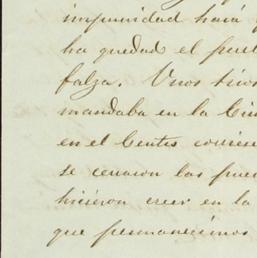 impunidad hará
ha quedado el
falza. Unos tiros
mandaba en la
en el Centro
se cerraron las
hicieron creer en la
que permanecimos